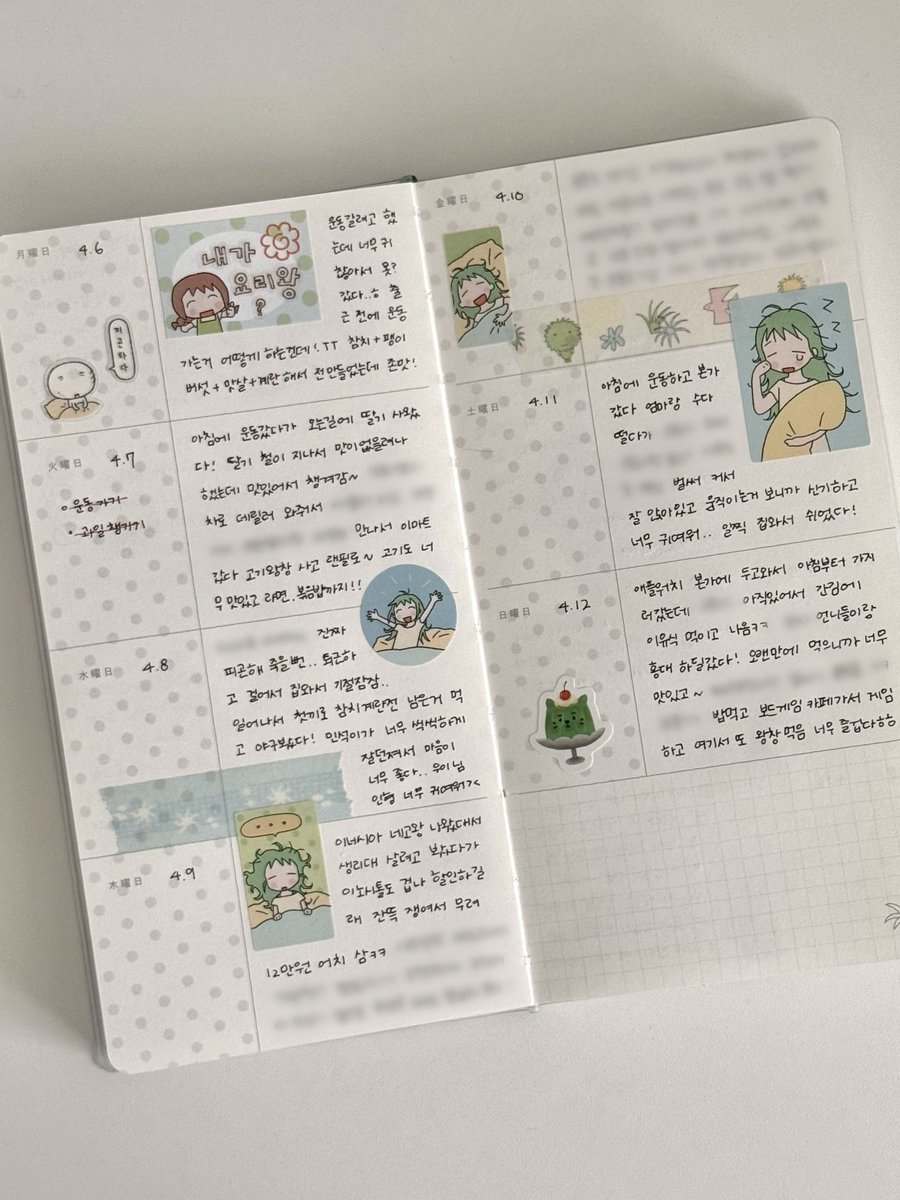 月曜日 4.6
피곤하다
내가
요리왕
?
운동갈려고 했
는데 너무 귀
찮아서 못?
갔다..ㅎ 출
근 전에 운동
가는거 어떻게 하는건데!.TT 참치+팽이
버섯+맛살+계란해서 전만들었는데 존맛!
火曜日 4.7
운동가기
과일챙기기
아침에 운동갔다가 오는길에 딸기 사왔
다! 딸기 철이 지나서 맛이없을려나
했는데 맛있어서 챙겨감~
차로 데릴러 와줘서
만나서 이마트
갔다 고기왕창 사고 랜필로~ 고기도 너
무 맛있고 라면.볶음밥까지!!
水曜日 4.8
진짜
피곤해 죽을뻔.. 퇴근하
고 걸어서 집와서 기절잠잠..
일어나서 첫끼로 참치계란전 남은거 먹
고 야구봤다! 민석이가 너무 씩씩하게
잘던져서 마음이
너무 좋다.. 우이님
인형 너무 귀여워ㄱㄱ
木曜日 4.9
이너시아 네고왕 나왔대서
생리대 살려고 보다가
이노시톨도 겁나 할인하길
래 잔뜩 쟁여서 무려
12만원 어치 삼ㅋㅋ
金曜日 4.10
土曜日 4.11
z z z
아침에 운동하고 본가
갔다 엄마랑 수다
떨다가
벌써 커서
잘 앉아있고 움직이는거 보니까 신기하고
너무 귀여워.. 일찍 집와서 쉬었다!
日曜日 4.12
애플워치 본가에 두고와서 아침부터 가지
러갔는데 아직있어서 간김에
이유식 먹이고 나옴ㅋㅋ 언니들이랑
홍대 하딜갔다! 오랜만에 먹으니까 너무
맛있고~
밥먹고 보드게임 카페가서 게임
하고 여기서 또 왕창먹음 너무 즐겁다ㅎㅎ